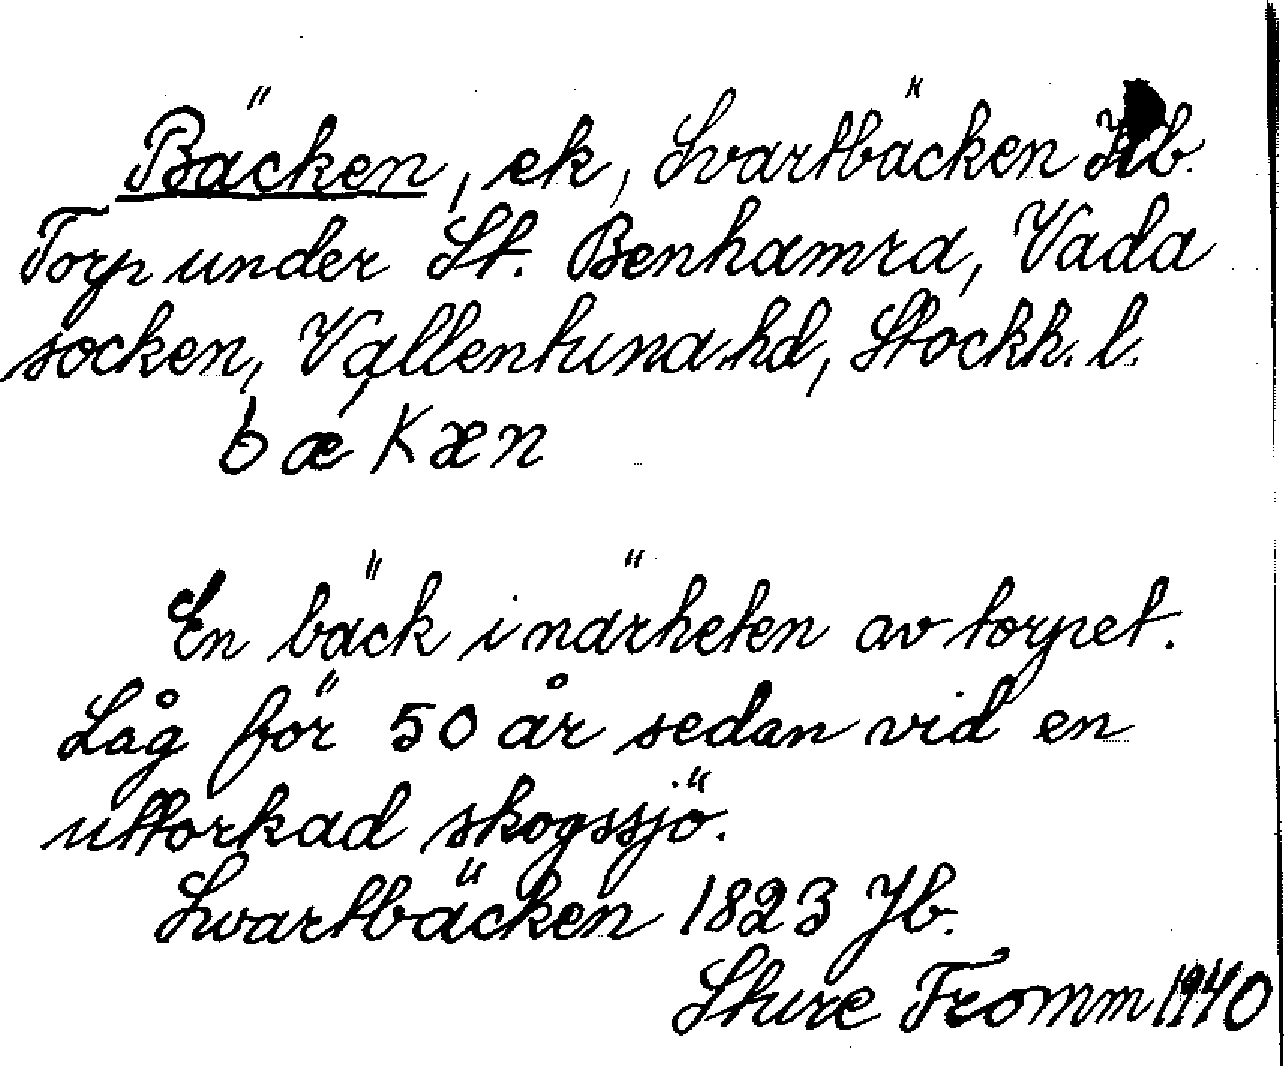 Bäcken, ek, Svartbäcken Jb.
Torp under St. Benhamra, Vada
socken, Vallentuna hd, Stockh. l.
bækæn
En bäck i närheten av torpet.
Låg för 50 år sedan vid en
uttorkad skogssjö.
Svartbäcken 1823 Jb.
Sture Fromm 1940